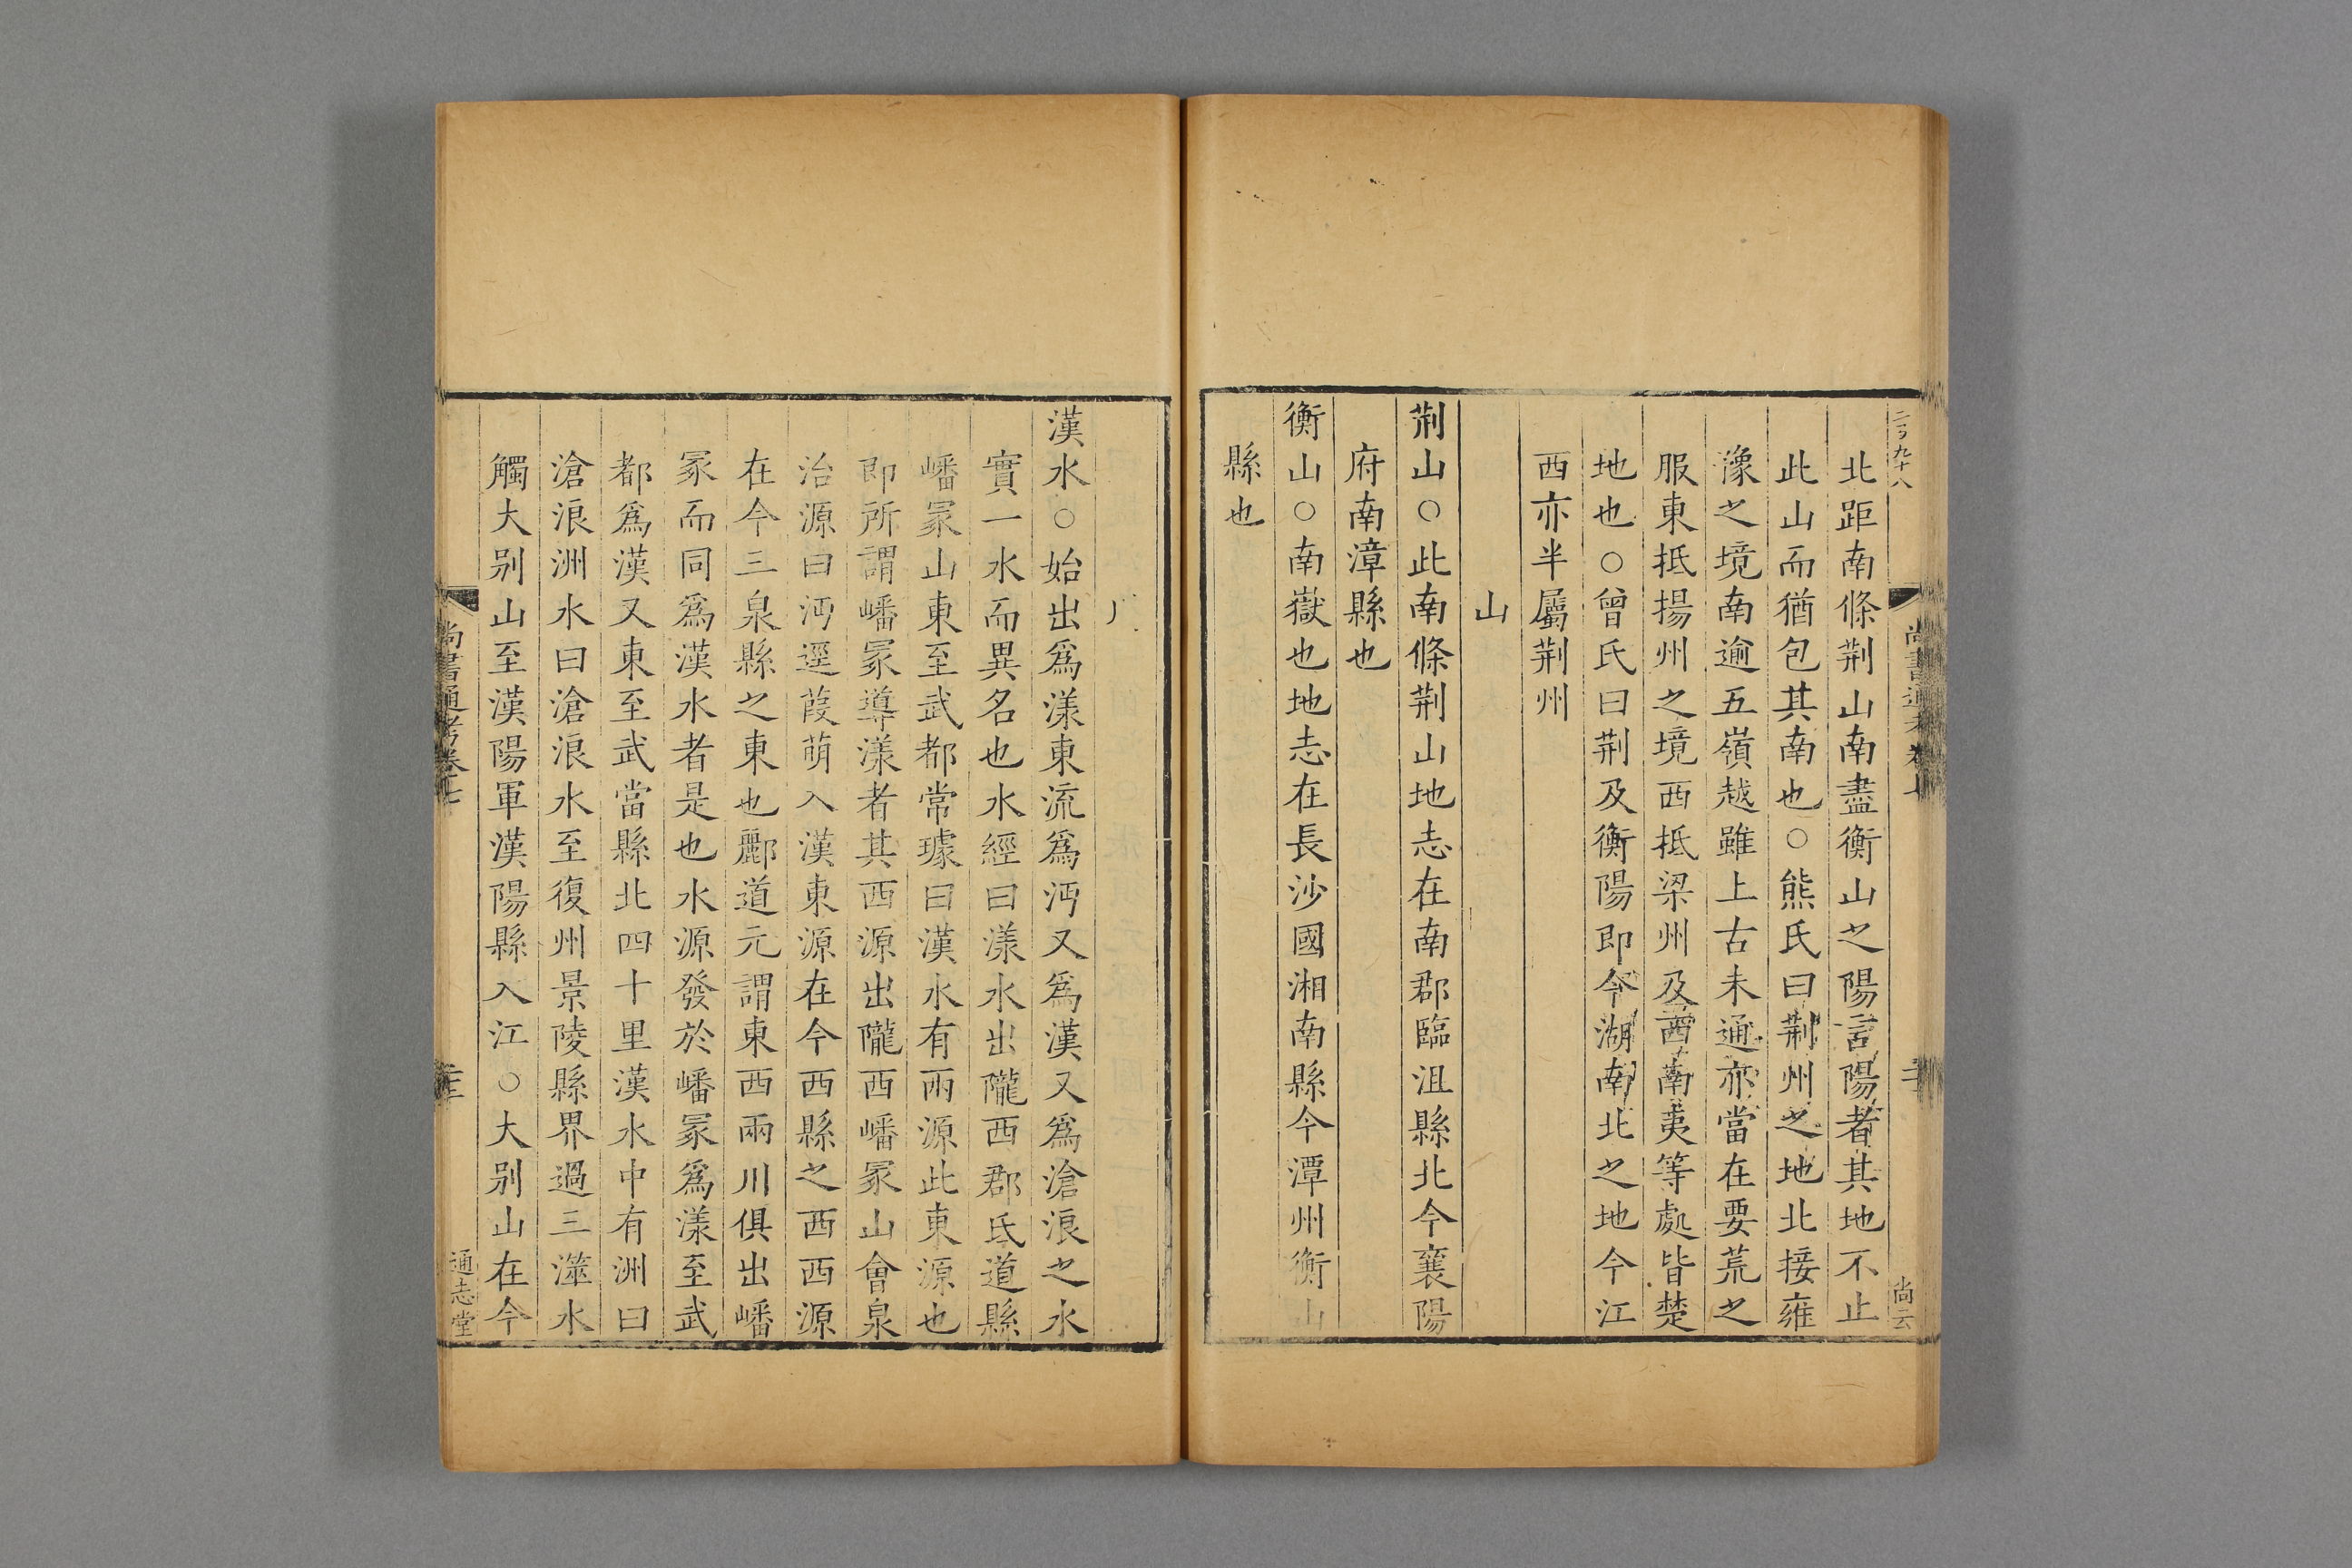 北距南條荆山南盡衡山之陽言陽者其地不止
此山而猶包其南也○熊氏曰荆州之地北接雍
豫之境南逾五嶺越雖上古未通亦當在要荒之
服東抵揚州之境西抵梁州及西南夷等處皆楚
地也○曾氏曰荆及衡陽即今湖南北之地今江
西亦半屬荆州
山
荆山○此南條荆山地志在南郡臨沮縣北今襄陽
府南漳縣也
衡山○南嶽也地志在長沙國湘南縣今潭州衡山
縣也
漢水○始出爲漾東流爲沔又爲漢又爲滄浪之水
實一水而異名也水經曰漾水出隴西郡氐道縣
嶓冢山東至武都常璩曰漢水有兩源此東源也
即所謂嶓冢導漾者其西源出隴西嶓冢山會泉
治源曰沔逕葭萌入漢東源在今西縣之西西源
在今三泉縣之東也酈道元謂東西兩川俱出嶓
冢而同爲漢水者是也水源發於嶓冢爲漾至武
都爲漢又東至武當縣北四十里漢水中有洲曰
滄浪洲水曰滄浪水至復州景陵縣界過三澨水
觸大别山至漢陽軍漢陽縣入江○大别山在今
尚書通考卷七
通志堂